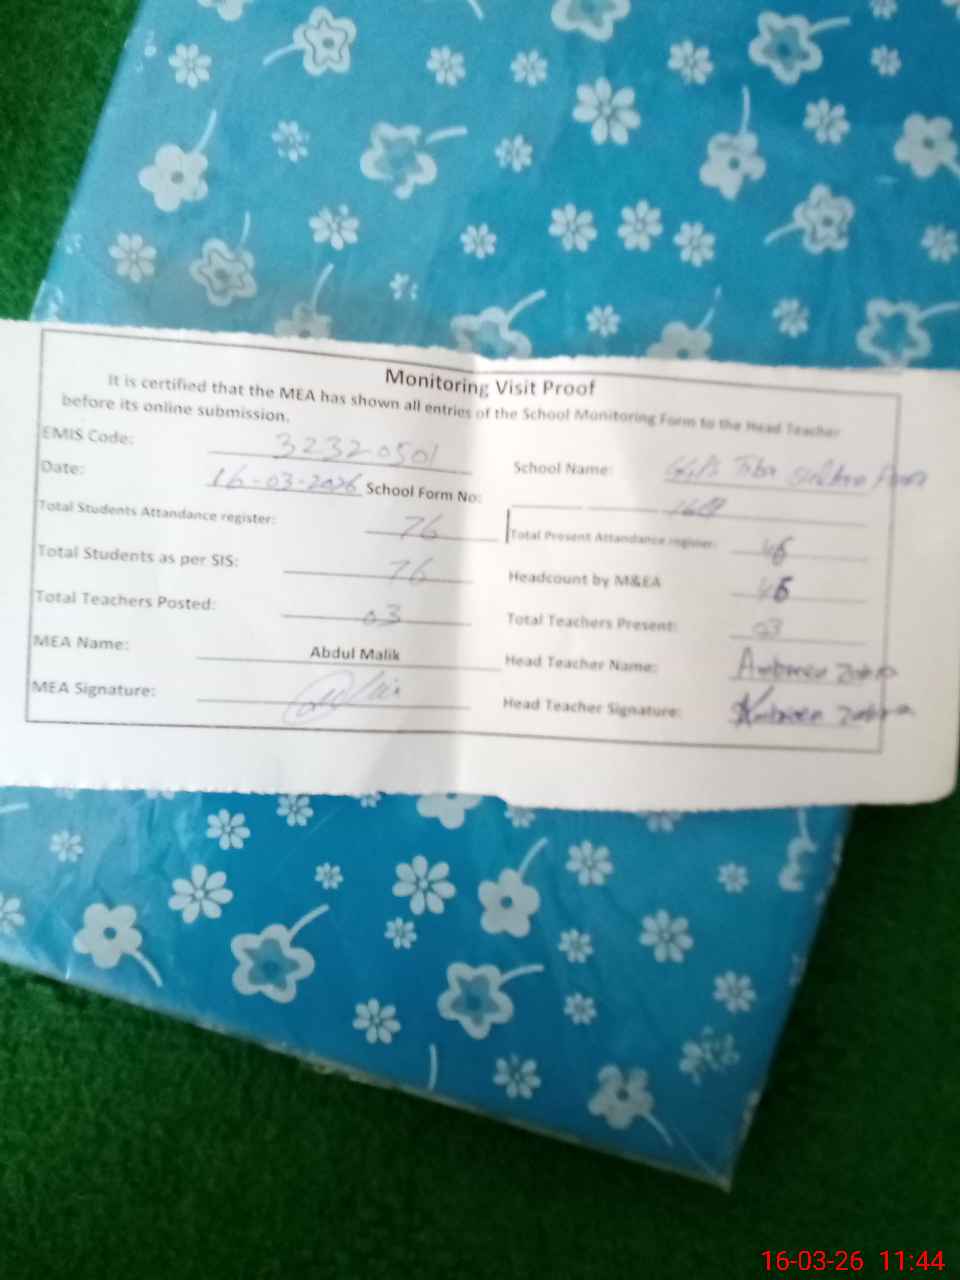 Monitoring Visit Proof
It is certified that the MEA has shown all entries of the School Monitoring Form to the Head Teacher
before its online submission.
EMIS Code: 32320501 School Name:
Date: 16-03-2026 School Form No:
Total Students Attandance register: 76 Total Present Attandance register:
Total Students as per SIS: 76 Headcount by M&EA
Total Teachers Posted: 03 Total Teachers Present: 03
MEA Name: Abdul Malik Head Teacher Name:
MEA Signature: Head Teacher Signature:
16-03-26 11:44